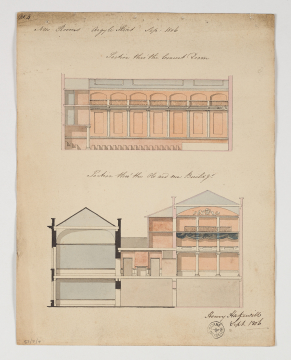 New Rooms Argyle Street Sep. 1806
Section thro' the Concert Room
Section thro' the Old and new Build.gs
Henry Harford
Sept. 1806